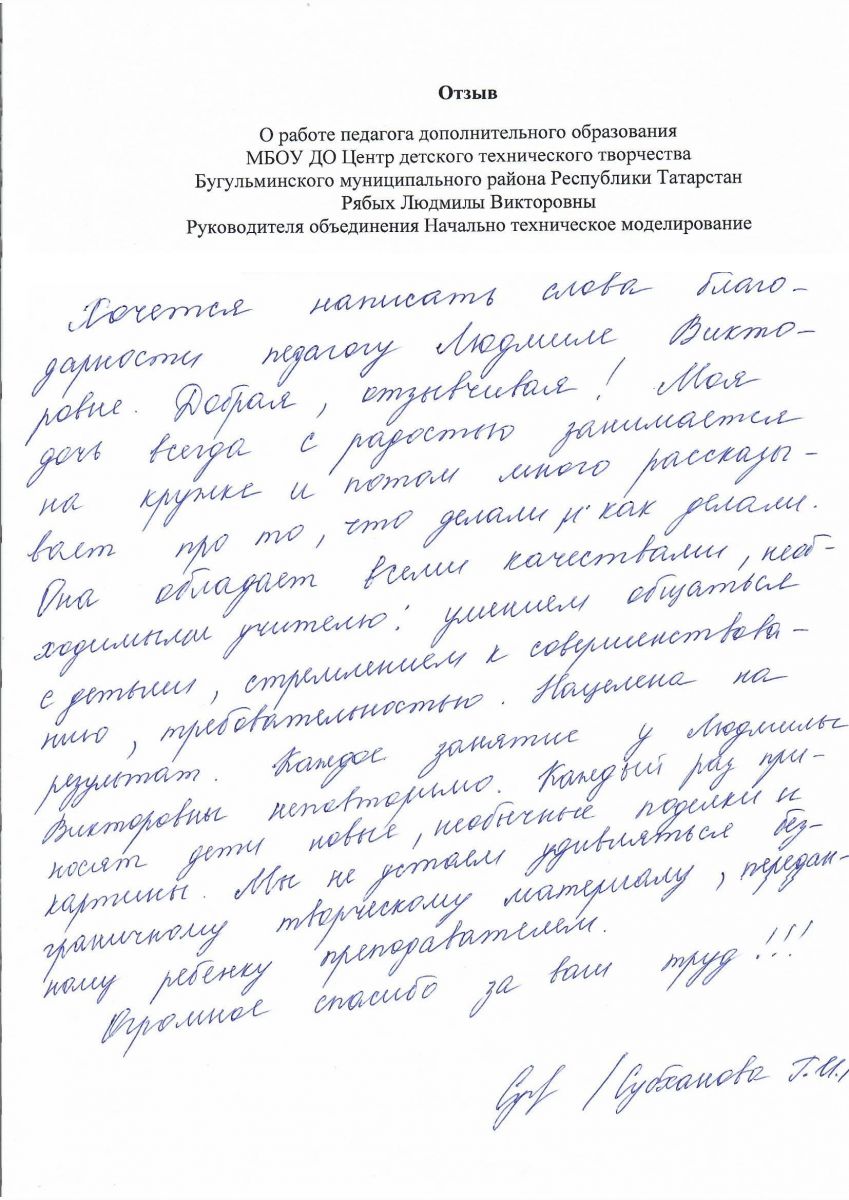 Отзыв
О работе педагога дополнительного образования
МБОУ ДО Центр детского технического творчества
Бугульминского муниципального района Республики Татарстан
Рябых Людмилы Викторовны
Руководителя объединения Начально техническое моделирование
Хочется написать слова благо-
дарности педагогу Людмиле Викто-
ровне. Добрая, отзывчивая! Моя
дочь всегда с радостью занимается
на кружке и потом много рассказы-
вает про то, что делали и как делали.
Она обладает всеми качествами, необ-
ходимыми учителю: умением общаться
с детьми, стремлением к совершенствова-
нию, требовательностью. Нацелена на
результат. Каждое занятие у Людмилы
Викторовны неповторимо. Каждый раз при-
носят дети новые, необычные поделки и
картины. Мы не устаем удивляться без-
граничному творческому материалу, передан-
ному ребенку преподавателем.
Огромное спасибо за ваш труд!!!
/Субханова Г.И./